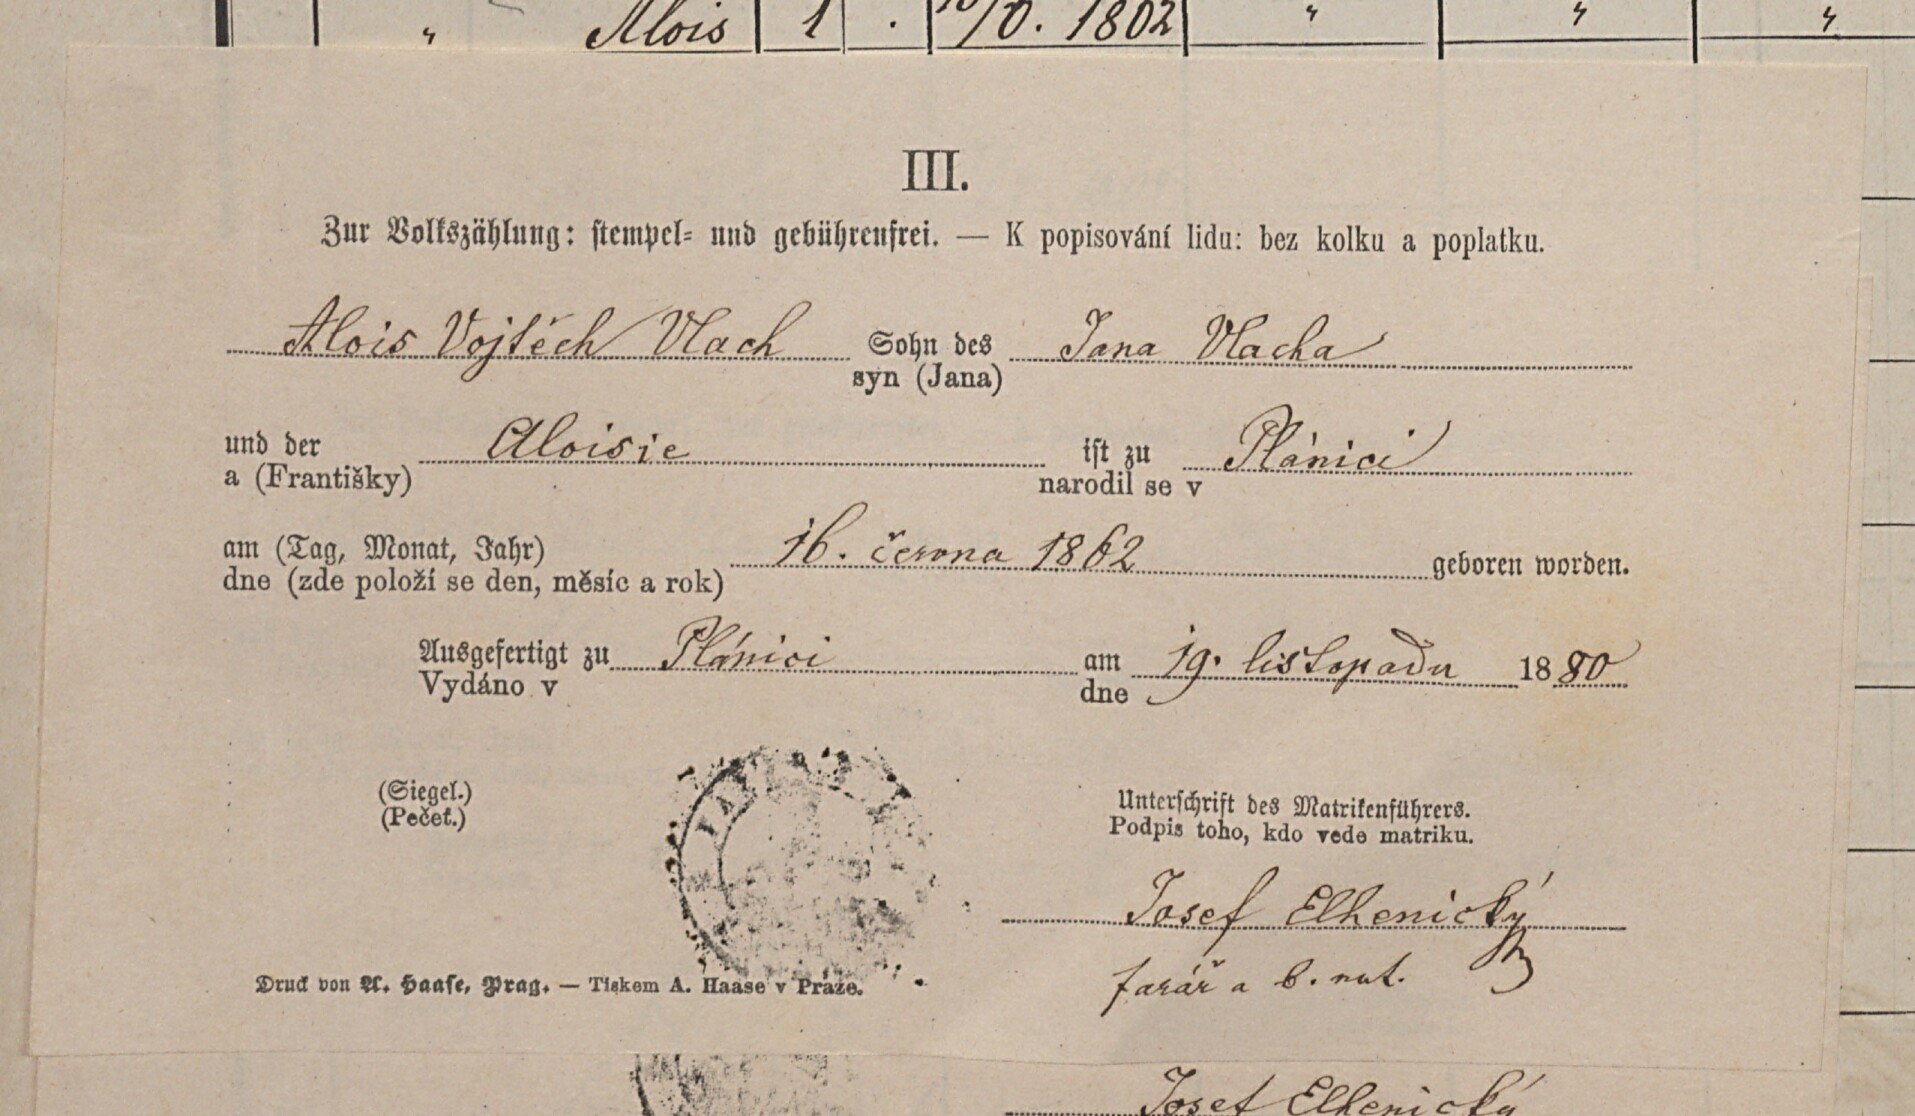 „ Alois 1 . 16/6. 1862 „ „ „
III.
Zur Volkszählung: stempel- und gebührenfrei. — K popisování lidu: bez kolku a poplatku.
Alois Vojtěch Vlach Sohn des Jana Vlacha
syn (Jana)
und der Aloisie ist zu Plánici
a (Františky) narodil se v
am (Tag, Monat, Jahr) 16. června 1862 geboren worden.
dne (zde položí se den, měsíc a rok)
Ausgefertigt zu Plánici am 19. listopadu 1880
Vydáno v dne
(Siegel.)
(Pečeť.)
Unterschrift des Matrikenführers.
Podpis toho, kdo vede matriku.
Josef Elhenický
farář a b. not.
Druck von A. Haase, Prag. — Tiskem A. Haase v Praze.
Josef Elhenický